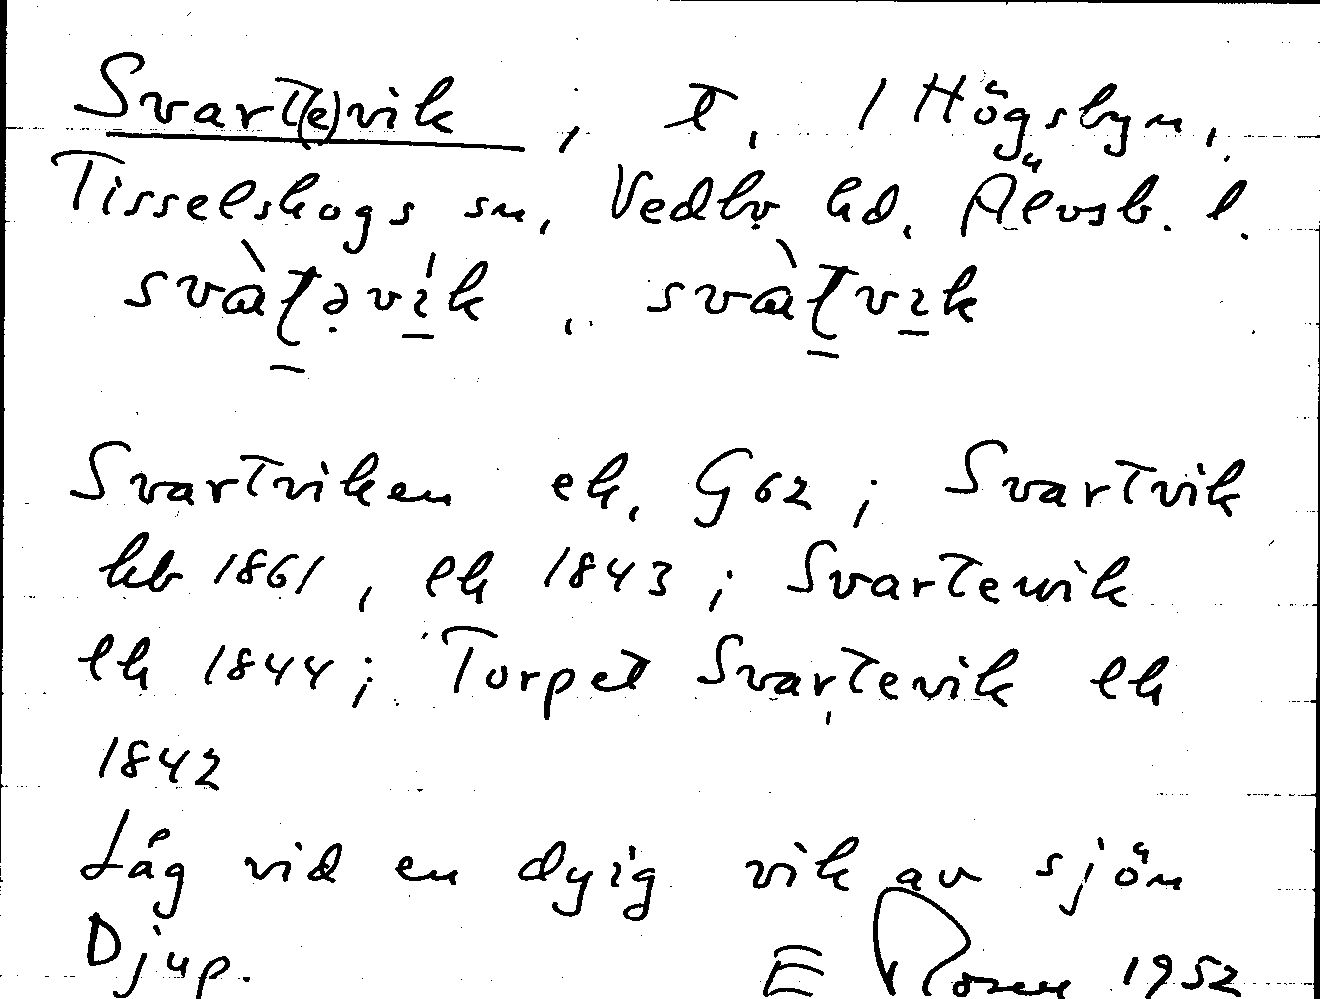 Svart(e)vik, t. / Högsbyn,
Tisselskogs sn, Vedbo hd, Älvsb. l.
Svartviken ek. G62; Svartvik
hb 1861, lh 1843; Svartewik
lh 1844; Torpet Svartevik lh
1842
Låg vid en dyig vik av sjön
Djup. E Rosen 1952